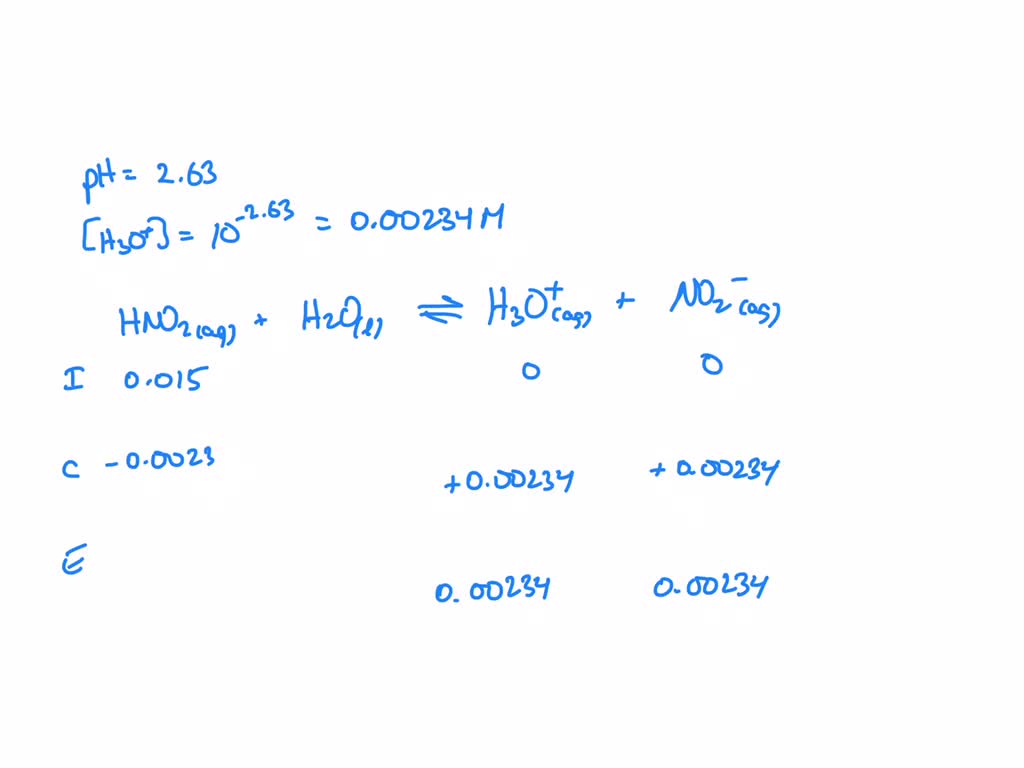 pH = 2.63
[H₃O⁺] = 10⁻²·⁶³ = 0.00234 M
HNO₂(aq) + H₂O(l) ⇌ H₃O⁺(aq) + NO₂⁻(aq)
I 0.015 0 0
C -0.0023 +0.00234 +0.00234
E 0.00234 0.00234